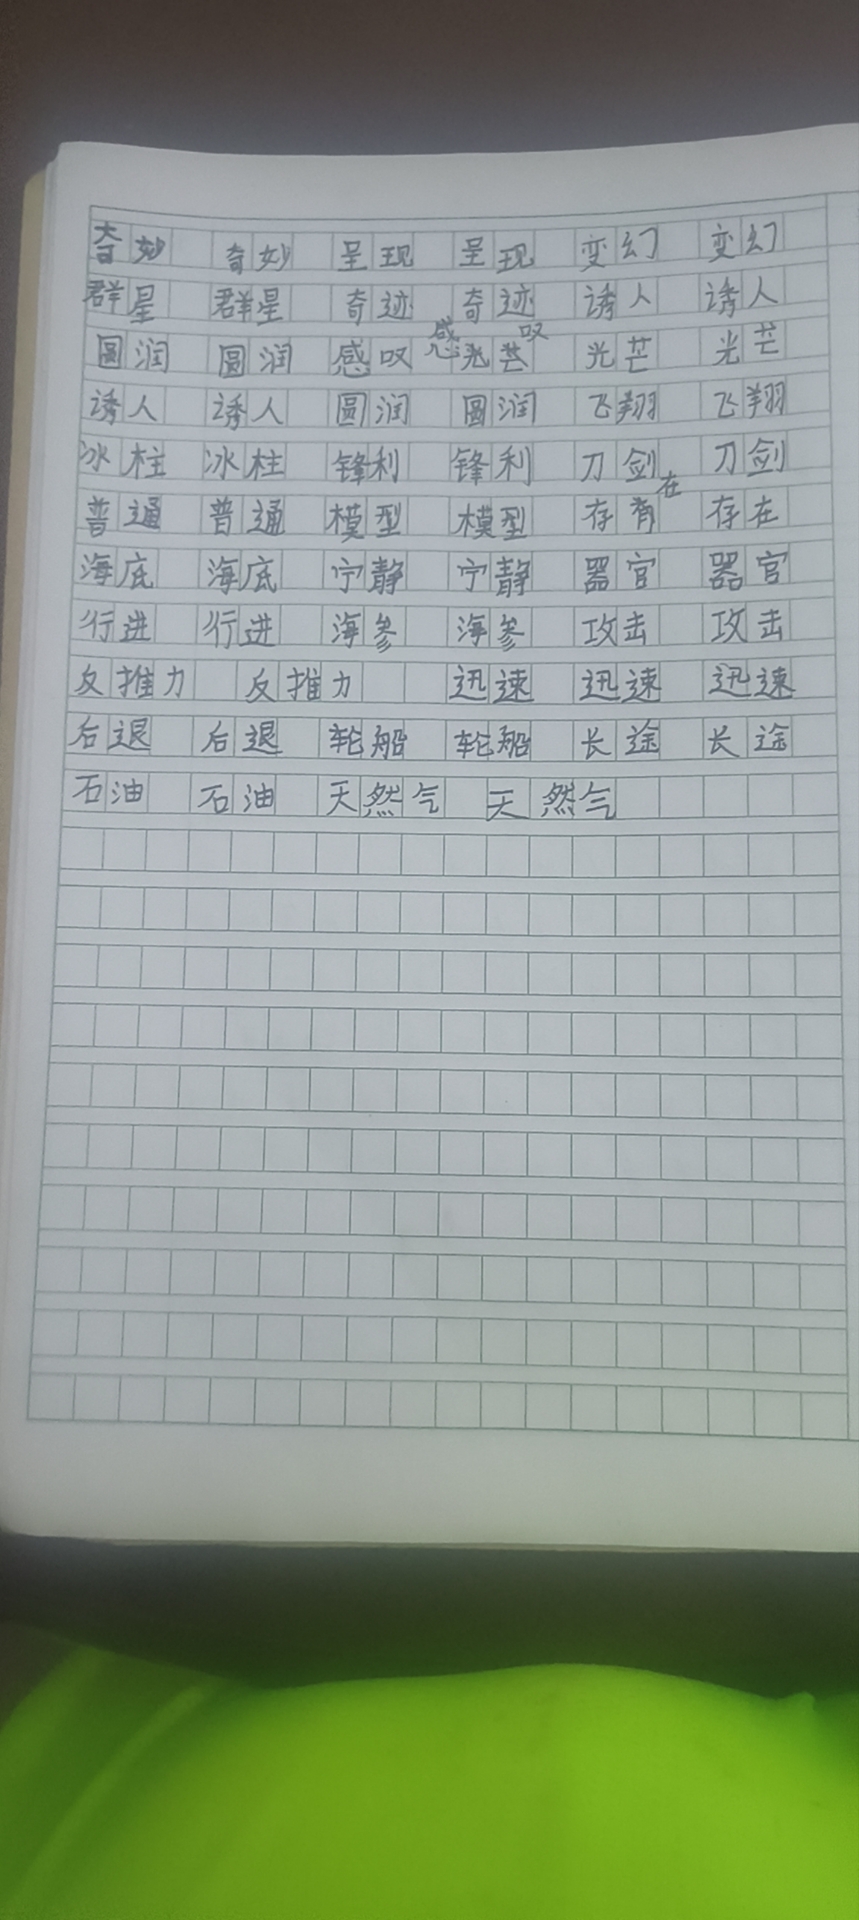 奇妙 奇妙 呈现 呈现 变幻 变幻
群星 群星 奇迹 奇迹 诱人 诱人
感 叹
圆润 圆润 感叹 光芒 光芒 光芒
诱人 诱人 圆润 圆润 飞翔 飞翔
冰柱 冰柱 锋利 锋利 刀剑 刀剑
在
普通 普通 模型 模型 存 存在
海底 海底 宁静 宁静 器官 器官
行进 行进 海参 海参 攻击 攻击
反推力 反推力 迅速 迅速 迅速
后退 后退 轮船 轮船 长途 长途
石油 石油 天然气 天然气